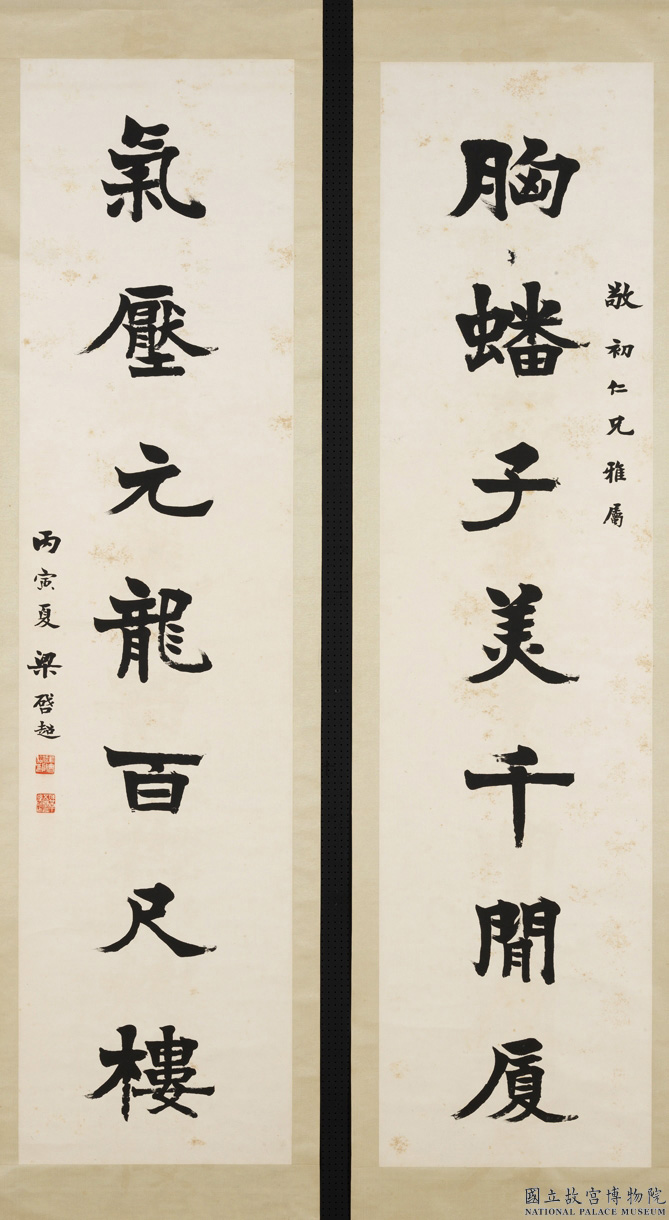 胸蟠子美千閒厦
敬初仁兄雅屬
氣壓元龍百尺樓
丙寅夏 梁啓超
國立故宮博物院
NATIONAL PALACE MUSEUM